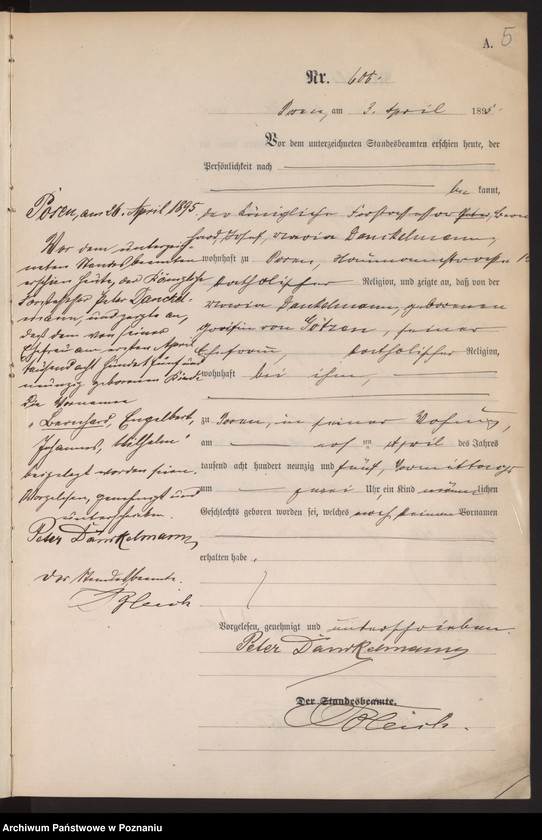 A. 5
Nr. 605.
Posen, am 3. April 1895.
Vor dem unterzeichneten Standesbeamten erschien heute, der
Persönlichkeit nach
be kannt,
der Königliche Forstassessor Peter, Bern
hard, Josef, Maria Danckelmann,
wohnhaft zu Posen,
katholischer Religion, und zeigte an, daß von der
Maria Danckelmann, geborenen
Gräfin von Götzen, seiner
Ehefrau, katholischer Religion,
wohnhaft bei ihm,
zu Posen, in seiner Wohnung,
am ersten April des Jahres
tausend acht hundert neunzig und fünf, Vormittags
um zwei Uhr ein Kind männlichen
Geschlechts geboren worden sei, welches noch keinen Vornamen
erhalten habe.
Vorgelesen, genehmigt und unterschrieben.
Peter Danckelmann
Der Standesbeamte.
Posen, am 26. April 1895.
Vor dem unterzeich-
neten Standesbeamten
erschien heute, der Königliche
Forstassessor Peter Danckel-
mann, und zeigte an,
daß dem von seiner
Ehefrau am ersten April
tausend acht hundert fünf und
neunzig geborenen Kinde
die Vornamen
"Bernhard, Engelbert,
Johannes, Wilhelm"
beigelegt worden seien.
Vorgelesen, genehmigt und
unterschrieben.
Peter Danckelmann
Der Standesbeamte.
Archiwum Państwowe w Poznaniu